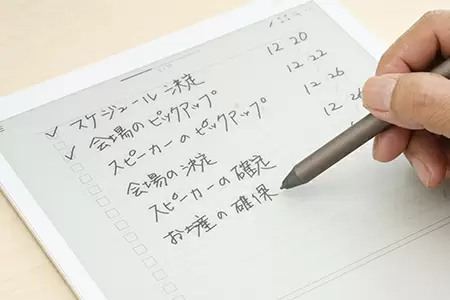 ✓ スケジュール決定 12 20
✓ 会場のピックアップ 12 22
スピーカーのピックアップ 12 26
会場の決定 12
スピーカーの確定
お土産の確保